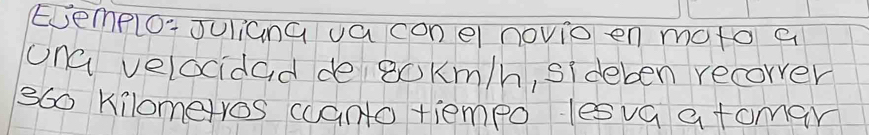 Ejemplo: Juliana va con el novio en moto a
una velocidad de 80km/h, si deben recorrer
360 kilometros cuanto tiempo les va a tomar